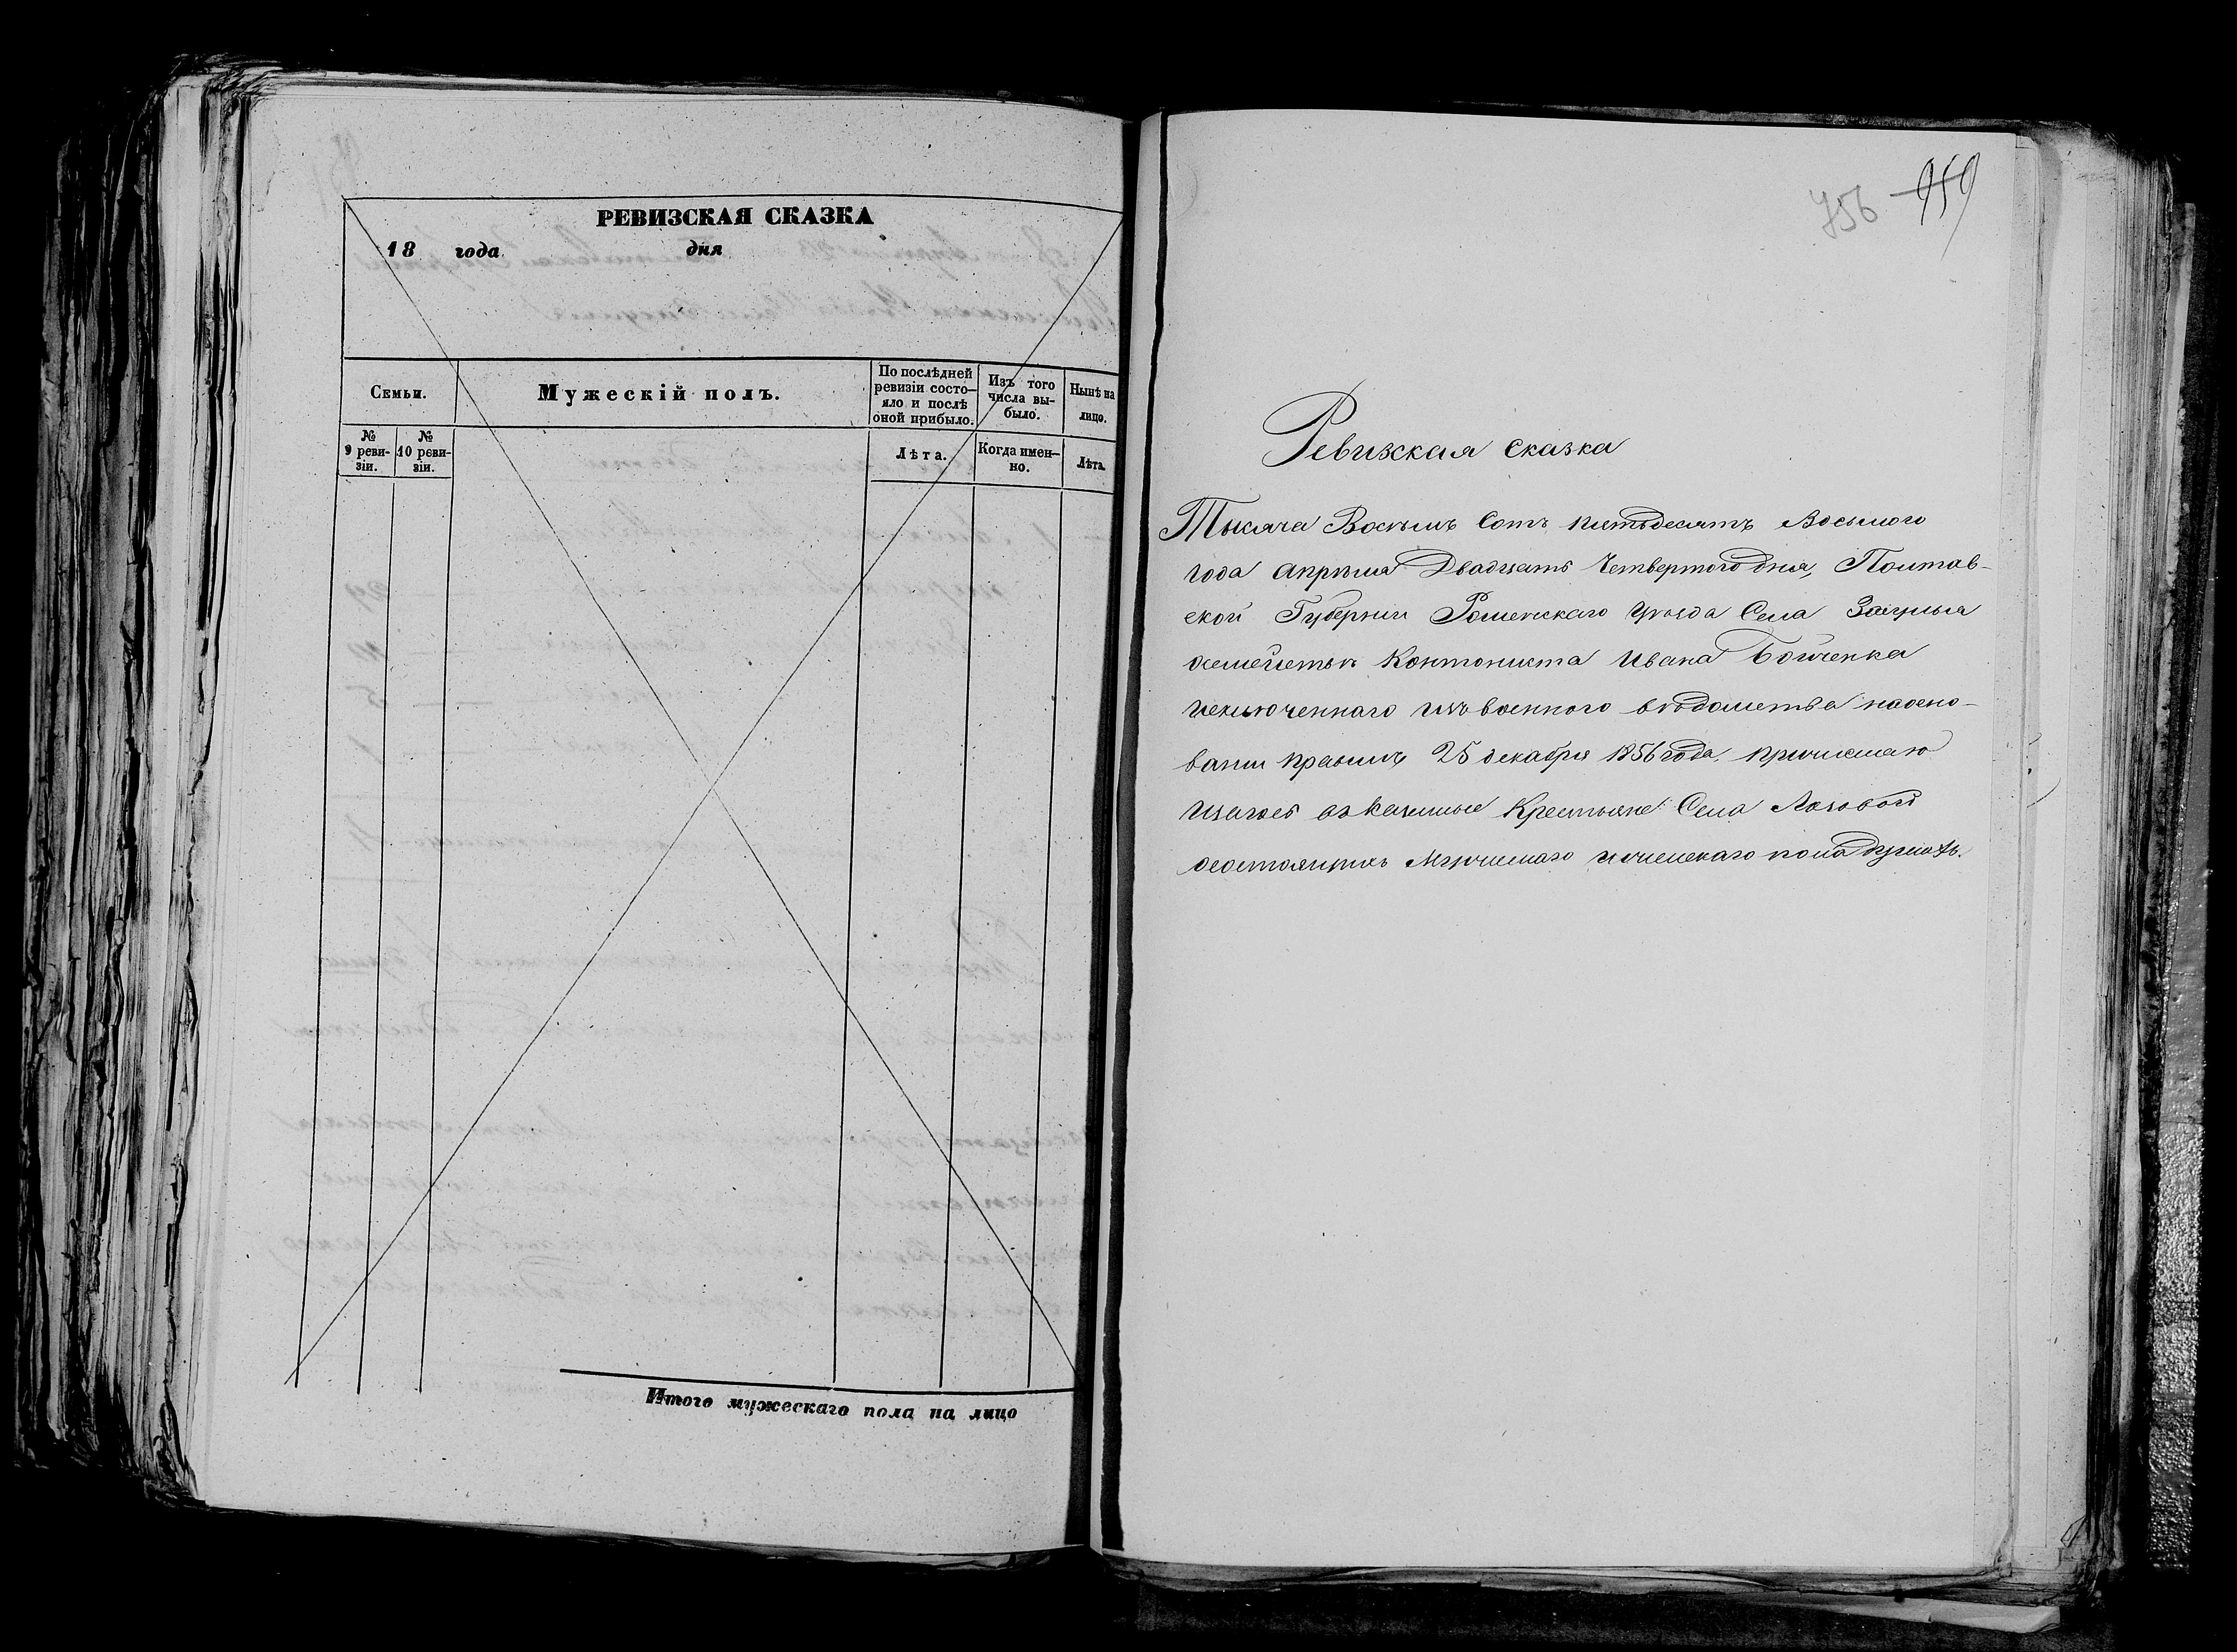 РЕВИЗСКАЯ СКАЗКА
18 года дня
Семьи.
Мужескій полъ.
По послѣдней ревизіи состо-
яло и послѣ оной прибыло.
Изъ того числа вы-
было.
Нынѣ на лицо.
№ 9 реви-
зіи.
№ 10 реви-
зіи.
Лѣта.
Когда имен-
но.
Лѣта.
Итого мужескаго пола на лицо
756 959
Ревизская сказка
Тысяча Восемь Сотъ пятьдесятъ Восьмого
года апрѣля Двадцать Четвертого дня, Полтав-
ской Губерніи Роменскаго уѣзда Села
Кантониста Ивана Бойченка
исключеннаго изъ военного вѣдомства на осно-
ваніи правилъ 25 декабря 1856 года,
въ казенные Крестьяне Села Лозовой
состоящихъ Мужескаго и женскаго пола душахъ.